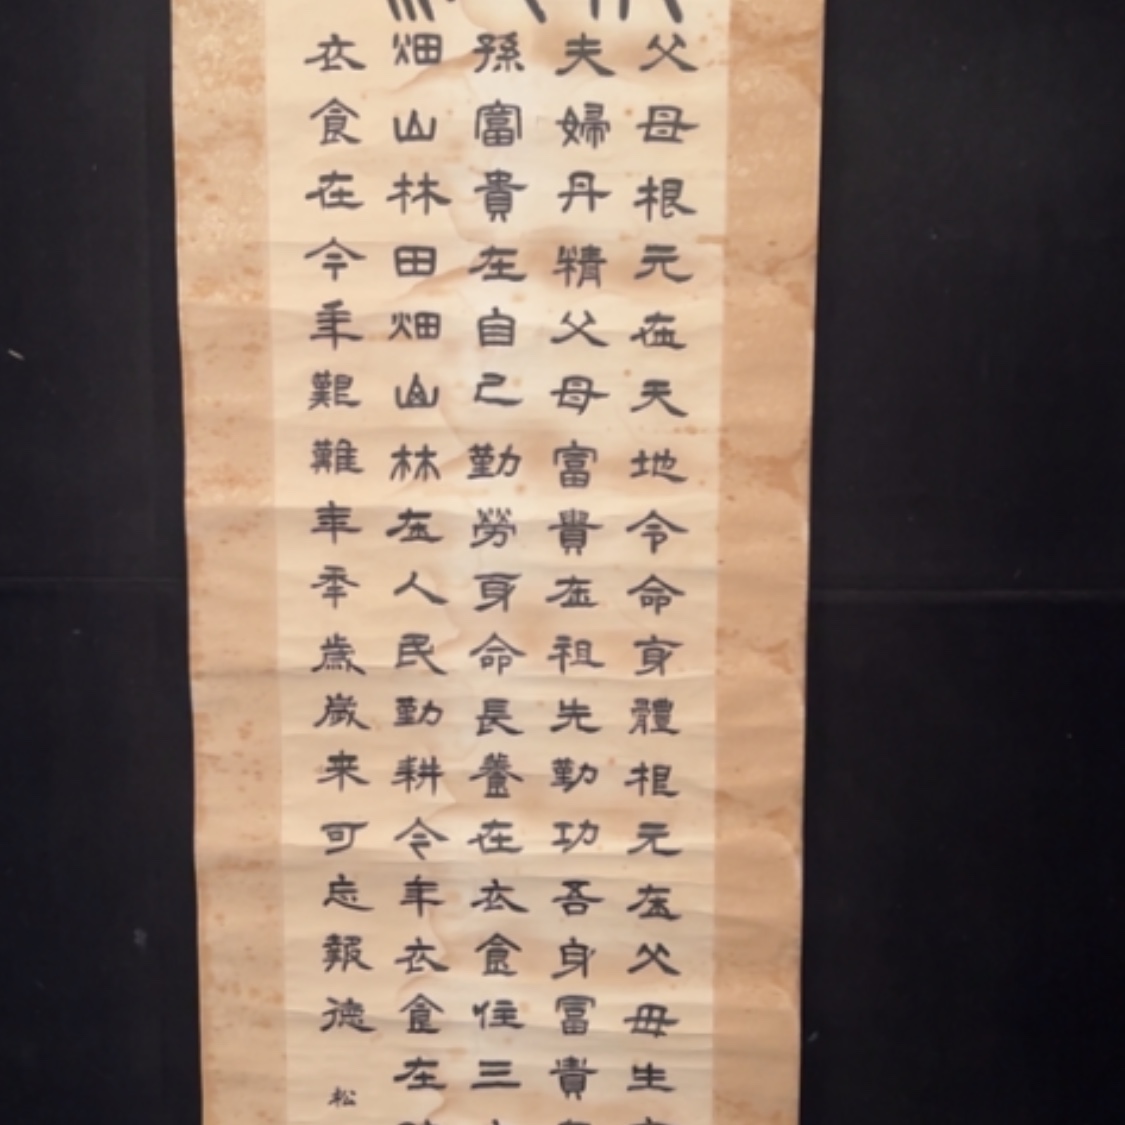 父母根元在天地令命身體根元在父母生
夫婦丹精父母富貴在祖先勤功吾身富貴
孫富貴在自己勤勞身命長養在衣食住三
畑山林田畑山林在人民勤耕今年衣食在
衣食在今年艱難年年歳歳来可忘報徳
松